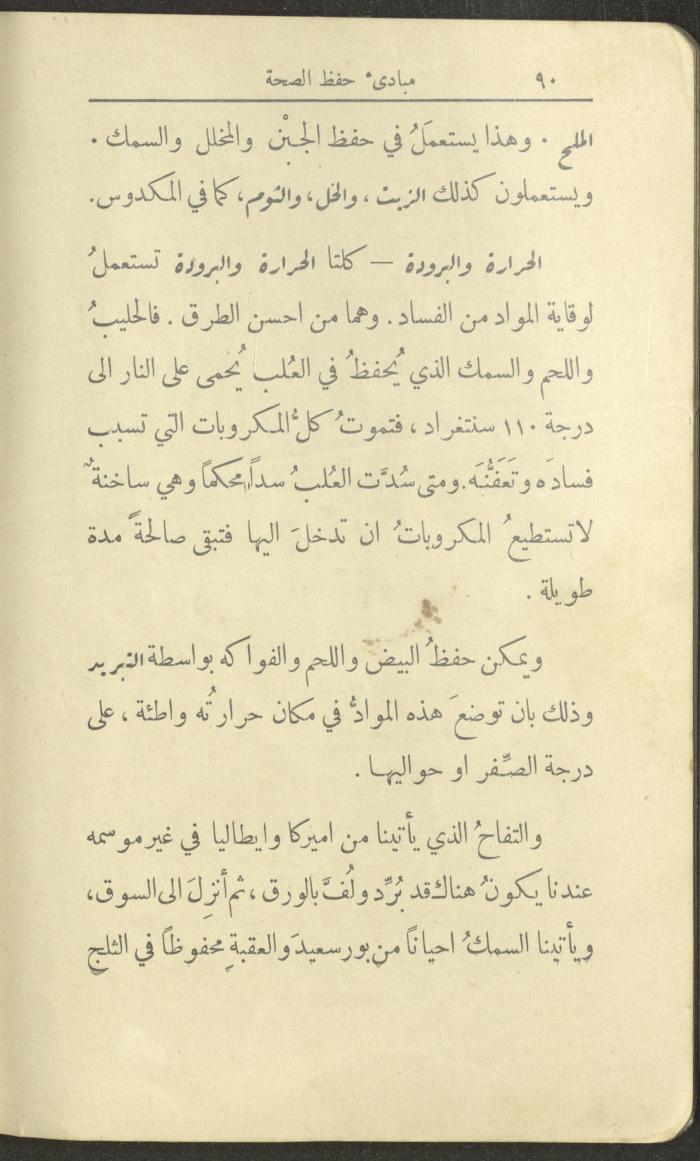 ٩٠ مبادىء حفظ الصحة
الملح . وهذا يستعمَلُ في حفظ الجبْن والمخلل والسمك .
ويستعملون كذلك الزيت ، والخل، والثوم، كما في المكدوس.
الحرارة والبرودة — كلتا الحرارة والبرودة تستعملُ
لوقاية المواد من الفساد . وهما من احسن الطرق . فالحليبُ
واللحم والسمك الذي يُحفظُ في العُلب يُحمى على النار الى
درجة ١١٠ سنتغراد ، فتموتُ كلُّ المكروبات التي تسبب
فسادَه وتَعَفُّنَه. ومتى سُدَّت العُلبُ سداً محكماً وهي ساخنةٌ
لا تستطيعُ المكروباتُ ان تدخلَ اليها فتبقى صالحةً مدة
طويلة .
ويمكن حفظُ البيض واللحم والفواكه بواسطة التبريد
وذلك بان توضعَ هذه الموادُّ في مكان حرارتُه واطئة ، على
درجة الصِّفر او حواليها .
والتفاحُ الذي يأتينا من اميركا وايطاليا في غير موسمه
عندنا يكونُ هناك قد بُرِّد ولُفَّ بالورق ، ثم أنزِلَ الى السوق،
ويأتينا السمكُ احياناً من بور سعيدَ والعقبةِ محفوظاً في الثلجِ